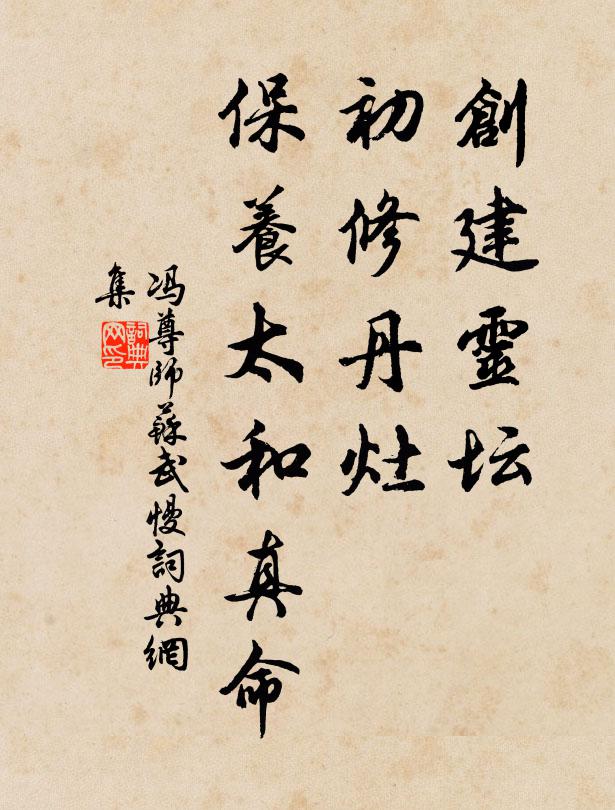 創建靈坛
初修丹灶
保養太和真命
冯尊師蘇武慢詞典網
集
詞典網印